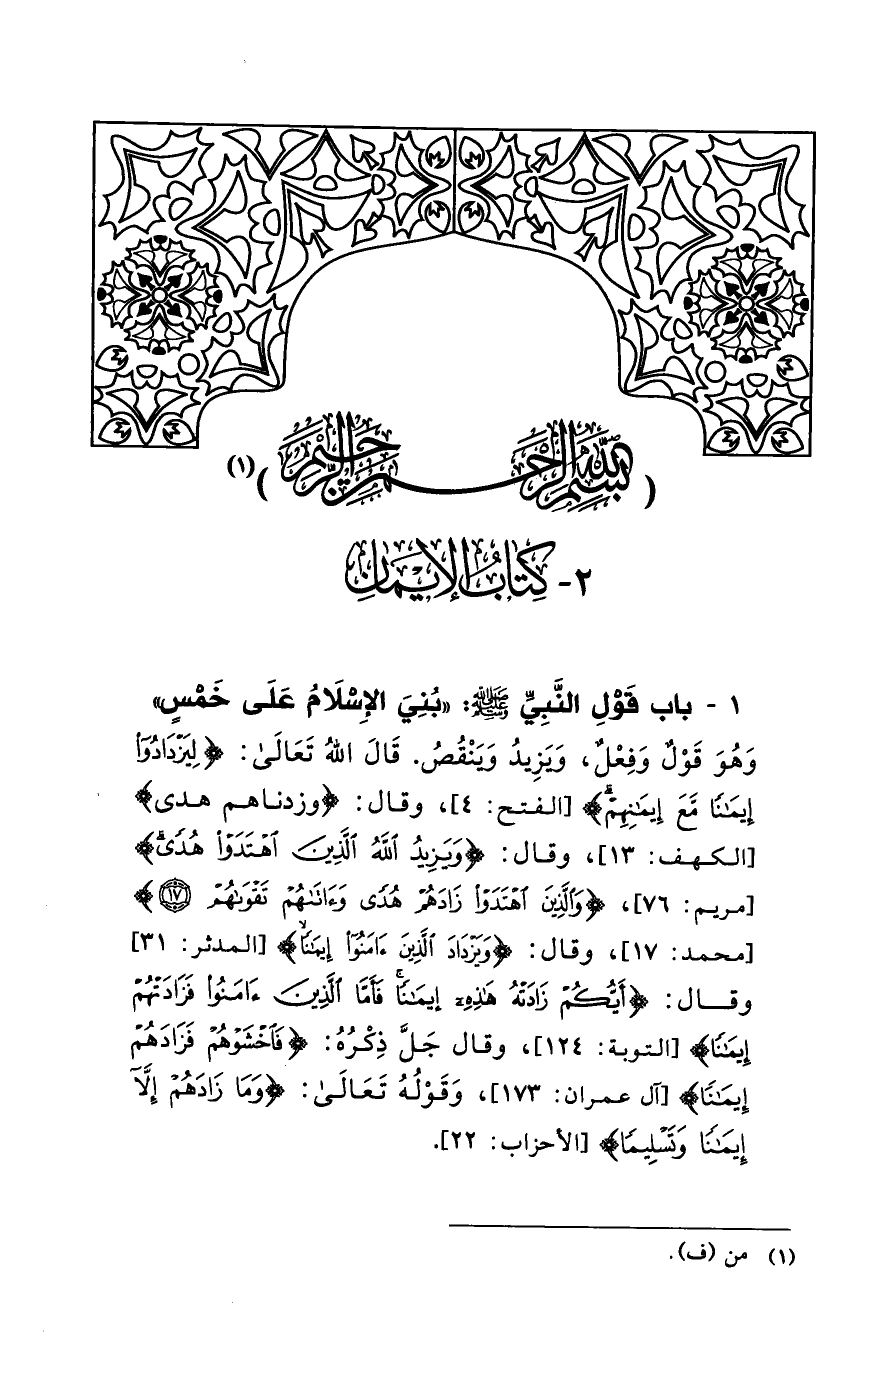 (بِسْمِ اللَّهِ الرَّحْمَٰنِ الرَّحِيمِ)(١)
٢- كِتَابُ الإِيمَانِ
١ - باب قَوْلِ النَّبِيِّ ﷺ: «بُنِيَ الإِسْلَامُ عَلَى خَمْسٍ»
وَهُوَ قَوْلٌ وَفِعْلٌ، وَيَزِيدُ وَيَنْقُصُ. قَالَ اللهُ تَعَالَىٰ: ﴿لِيَزْدَادُوٓا۟
إِيمَٰنًا مَّعَ إِيمَٰنِهِمْ ۗ﴾ [الفتح: ٤]، وقال: ﴿وزدناهم هدى﴾
[الكهف: ١٣]، وقال: ﴿وَيَزِيدُ ٱللَّهُ ٱلَّذِينَ ٱهْتَدَوْا۟ هُدًى ۗ﴾
[مريم: ٧٦]، ﴿وَٱلَّذِينَ ٱهْتَدَوْا۟ زَادَهُمْ هُدًى وَءَاتَىٰهُمْ تَقْوَىٰهُمْ ١٧﴾
[محمد: ١٧]، وقال: ﴿وَيَزْدَادَ ٱلَّذِينَ ءَامَنُوٓا۟ إِيمَٰنًا ۙ﴾ [المدثر: ٣١]
وقال: ﴿أَيُّكُمْ زَادَتْهُ هَٰذِهِۦٓ إِيمَٰنًا ۚ فَأَمَّا ٱلَّذِينَ ءَامَنُوا۟ فَزَادَتْهُمْ
إِيمَٰنًا﴾ [التوبة: ١٢٤]، وقال جَلَّ ذِكْرُهُ: ﴿فَٱخْشَوْهُمْ فَزَادَهُمْ
إِيمَٰنًا﴾ [آل عمران: ١٧٣]، وَقَوْلُهُ تَعَالَىٰ: ﴿وَمَا زَادَهُمْ إِلَّآ
إِيمَٰنًا وَتَسْلِيمًا﴾ [الأحزاب: ٢٢].
(١) من (ف).